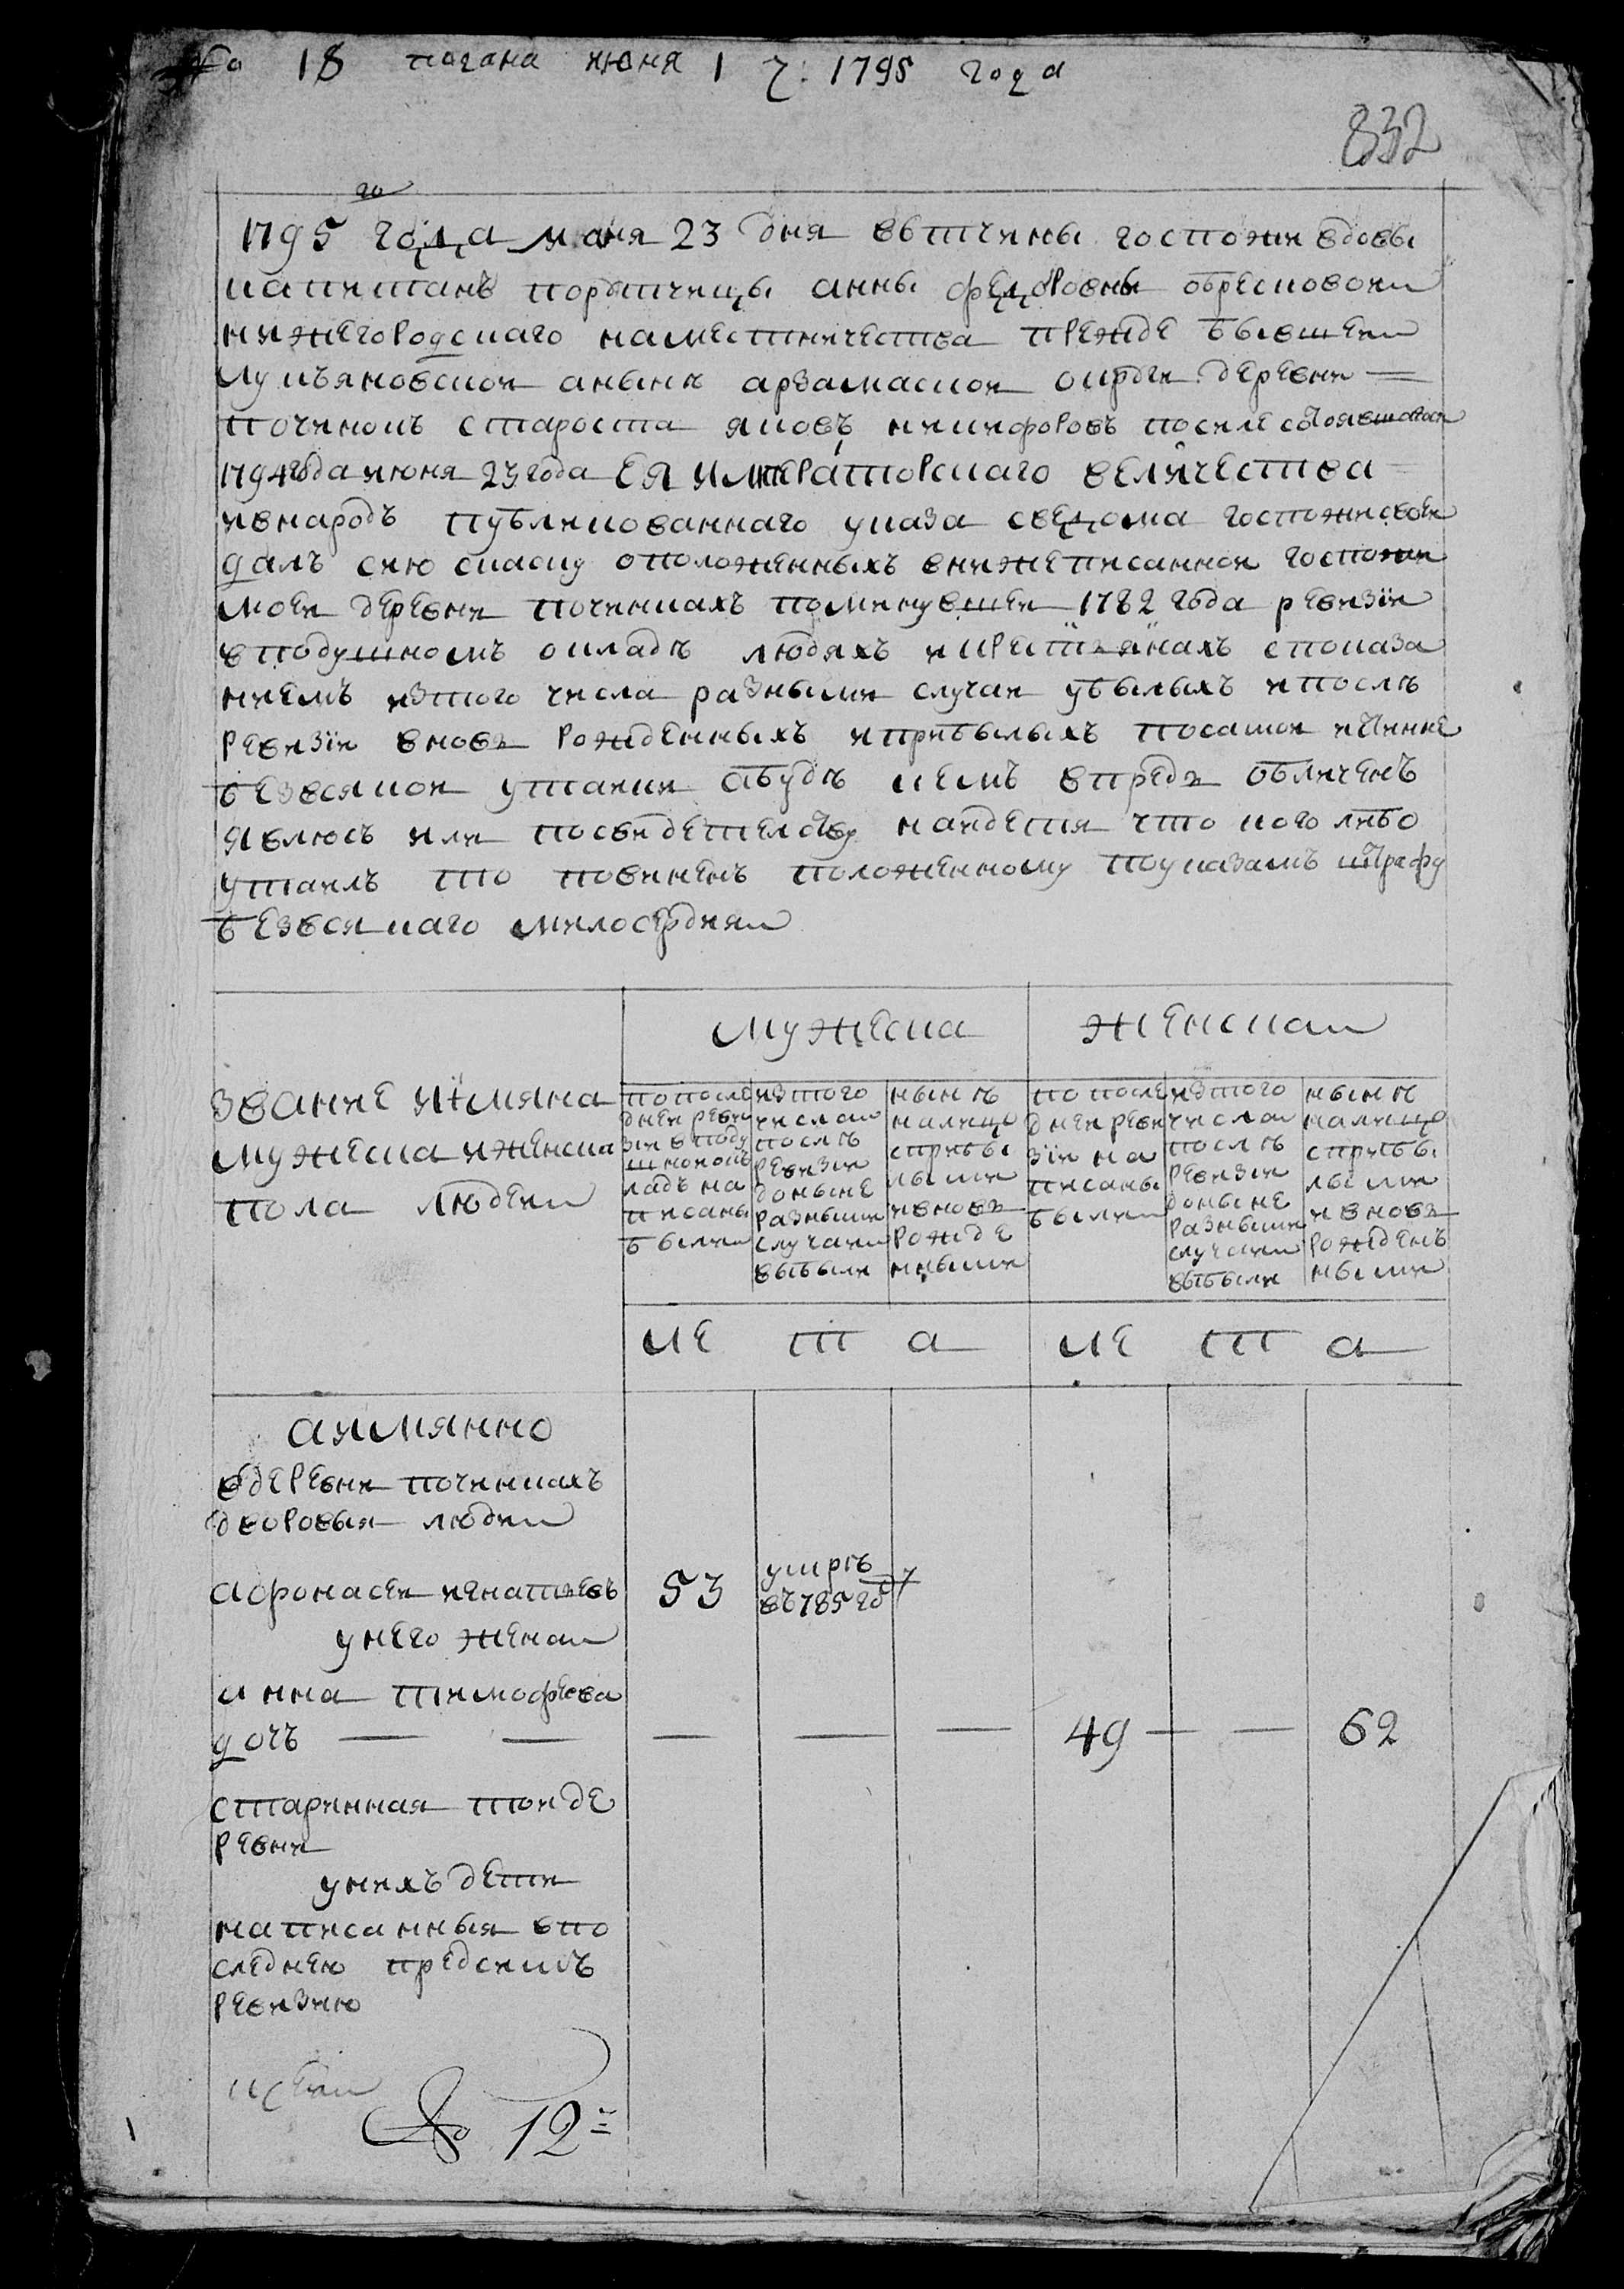 № 18 подана июня 1 ч: 1795 года
832
1795 го года маия 23 дня вотчины госпожи вдовы
капитанъ порутчицы анны федоровны обресковой
нижегородскаго наместничества прежде бывшей
лукьяновской анынѣ арзамаской округи деревни
починокъ староста яковъ никифоровъ посиле состоявшагося
1794 года июня 23 года ЕЯ императорскаго величества
ивнародъ публикованнаго указа сведома госпожи своей
далъ сию скаску оположенныхъ внижеписанной госпожи
моей деревни починкахъ поминувшей 1782 года ревизїи
вподушномъ окладѣ людяхъ икрестьянахъ споказа
ниемъ изтого числа разными случаи убылыхъ ипослѣ
ревизїи вновь рожденныхъ иприбылыхъ посамой истинне
безвсякой утайки абуде кемъ впредь обличенъ
явлюсь или посвидетельству найдетця что кого либо
утаилъ то повиненъ положенному поуказамъ штрафу
безвсякаго милосердия
мужеска женска
звание иїмяна
мужеска иженска
пола людей
попосле
дней реви
зїи вподу
шномок
ладъ на
писаны
были
изтого
числа
послѣ
ревизии
доныне
разными
случаи
выбыли
нынѣ
налицо
сприбы
лыми
ивновь
рожде
нными
попосле
дней реви
зїи на
писаны
были
изтого
числа
послѣ
ревизии
доныне
разными
случаи
выбыли
нынѣ
налицо
сприбы
лыми
ивновь
рожденъ
ными
ле т а ле т а
аимянно
вдеревни починкахъ
дворовыя люди
афонасей игнатьевъ 53 умрѣ
въ 785 го
унего жена
анна тимофеева
дочь — — — — — 49 — — 62
старинная тойде
ревни
унихъ дети
написанныя впо
следнею предсимъ
ревизию
№ 12